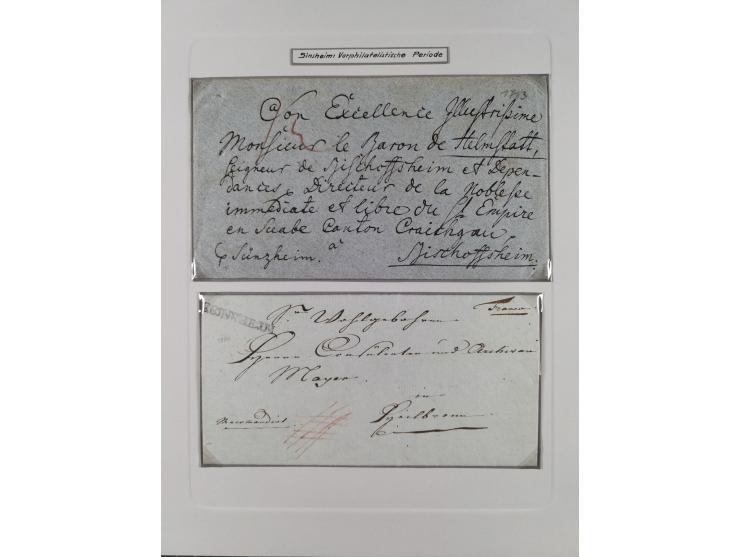 Sinsheim: Vorphilatelistische Periode
1793
a Son Excellence Illustrissime
Monsieur le Baron de Helmstatt,
Seigneur de Bischoffsheim et Depen-
dances, Directeur de la Noblesse
immediate et libre du St Empire
en Suabe Canton Craichgau.
à
p Sünzheim.
Bischoffsheim.
Franco
Sr Wohlgebohren
Herrn Consulenten und
Mayer.
in
Heilbronn